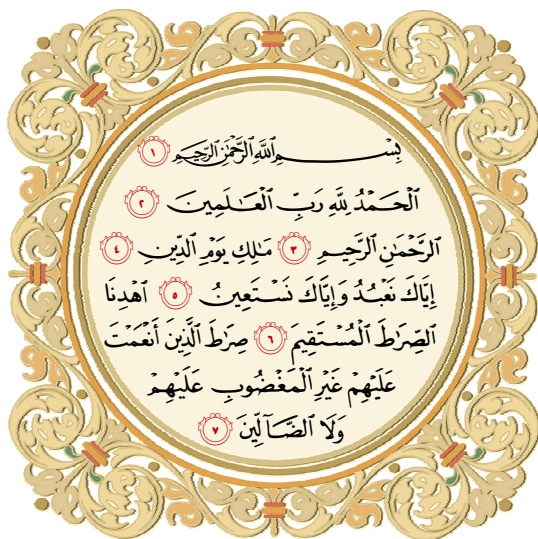 بِسۡمِ ٱللَّهِ ٱلرَّحۡمَٰنِ ٱلرَّحِيمِ ١
ٱلۡحَمۡدُ لِلَّهِ رَبِّ ٱلۡعَٰلَمِينَ ٢
ٱلرَّحۡمَٰنِ ٱلرَّحِيمِ ٣ مَٰلِكِ يَوۡمِ ٱلدِّينِ ٤
إِيَّاكَ نَعۡبُدُ وَإِيَّاكَ نَسۡتَعِينُ ٥ ٱهۡدِنَا
ٱلصِّرَٰطَ ٱلۡمُسۡتَقِيمَ ٦ صِرَٰطَ ٱلَّذِينَ أَنۡعَمۡتَ
عَلَيۡهِمۡ غَيۡرِ ٱلۡمَغۡضُوبِ عَلَيۡهِمۡ
وَلَا ٱلضَّآلِّينَ ٧